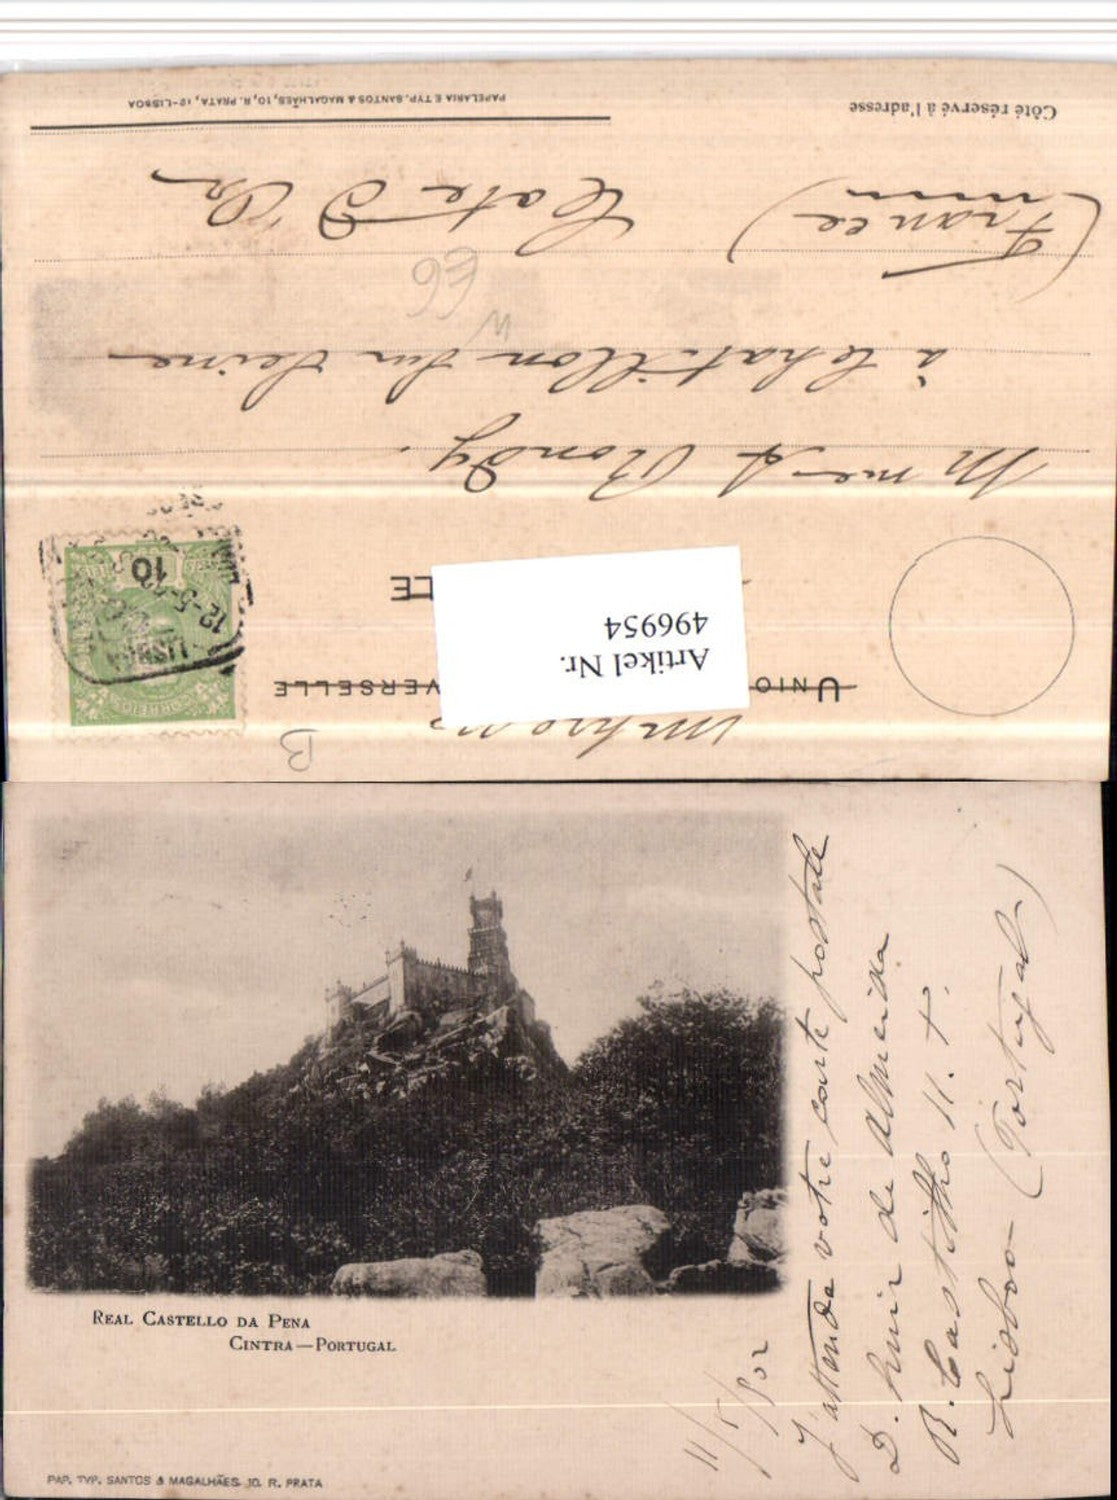 Côté réservé à l'adresse
PAPELARIA E TYP. SANTOS & MAGALHÃES, 10, R. PRATA, 12-LISBOA
(France)
Cote d'Or
E6
W
à Chatillon sur Seine
Mme A Rondy.
LLE
10
12-5-
LISBOA
CORREIOS
Artikel Nr.
496954
UNIO VERSELLE
B
REAL CASTELLO DA PENA
CINTRA—PORTUGAL
PAP. TYP. SANTOS & MAGALHÃES. 10. R. PRATA
11/5/902
J'attends votre carte postale
D. Luiz de Almeida
R. Castilho 11. +.
Lisboa (Portugal)